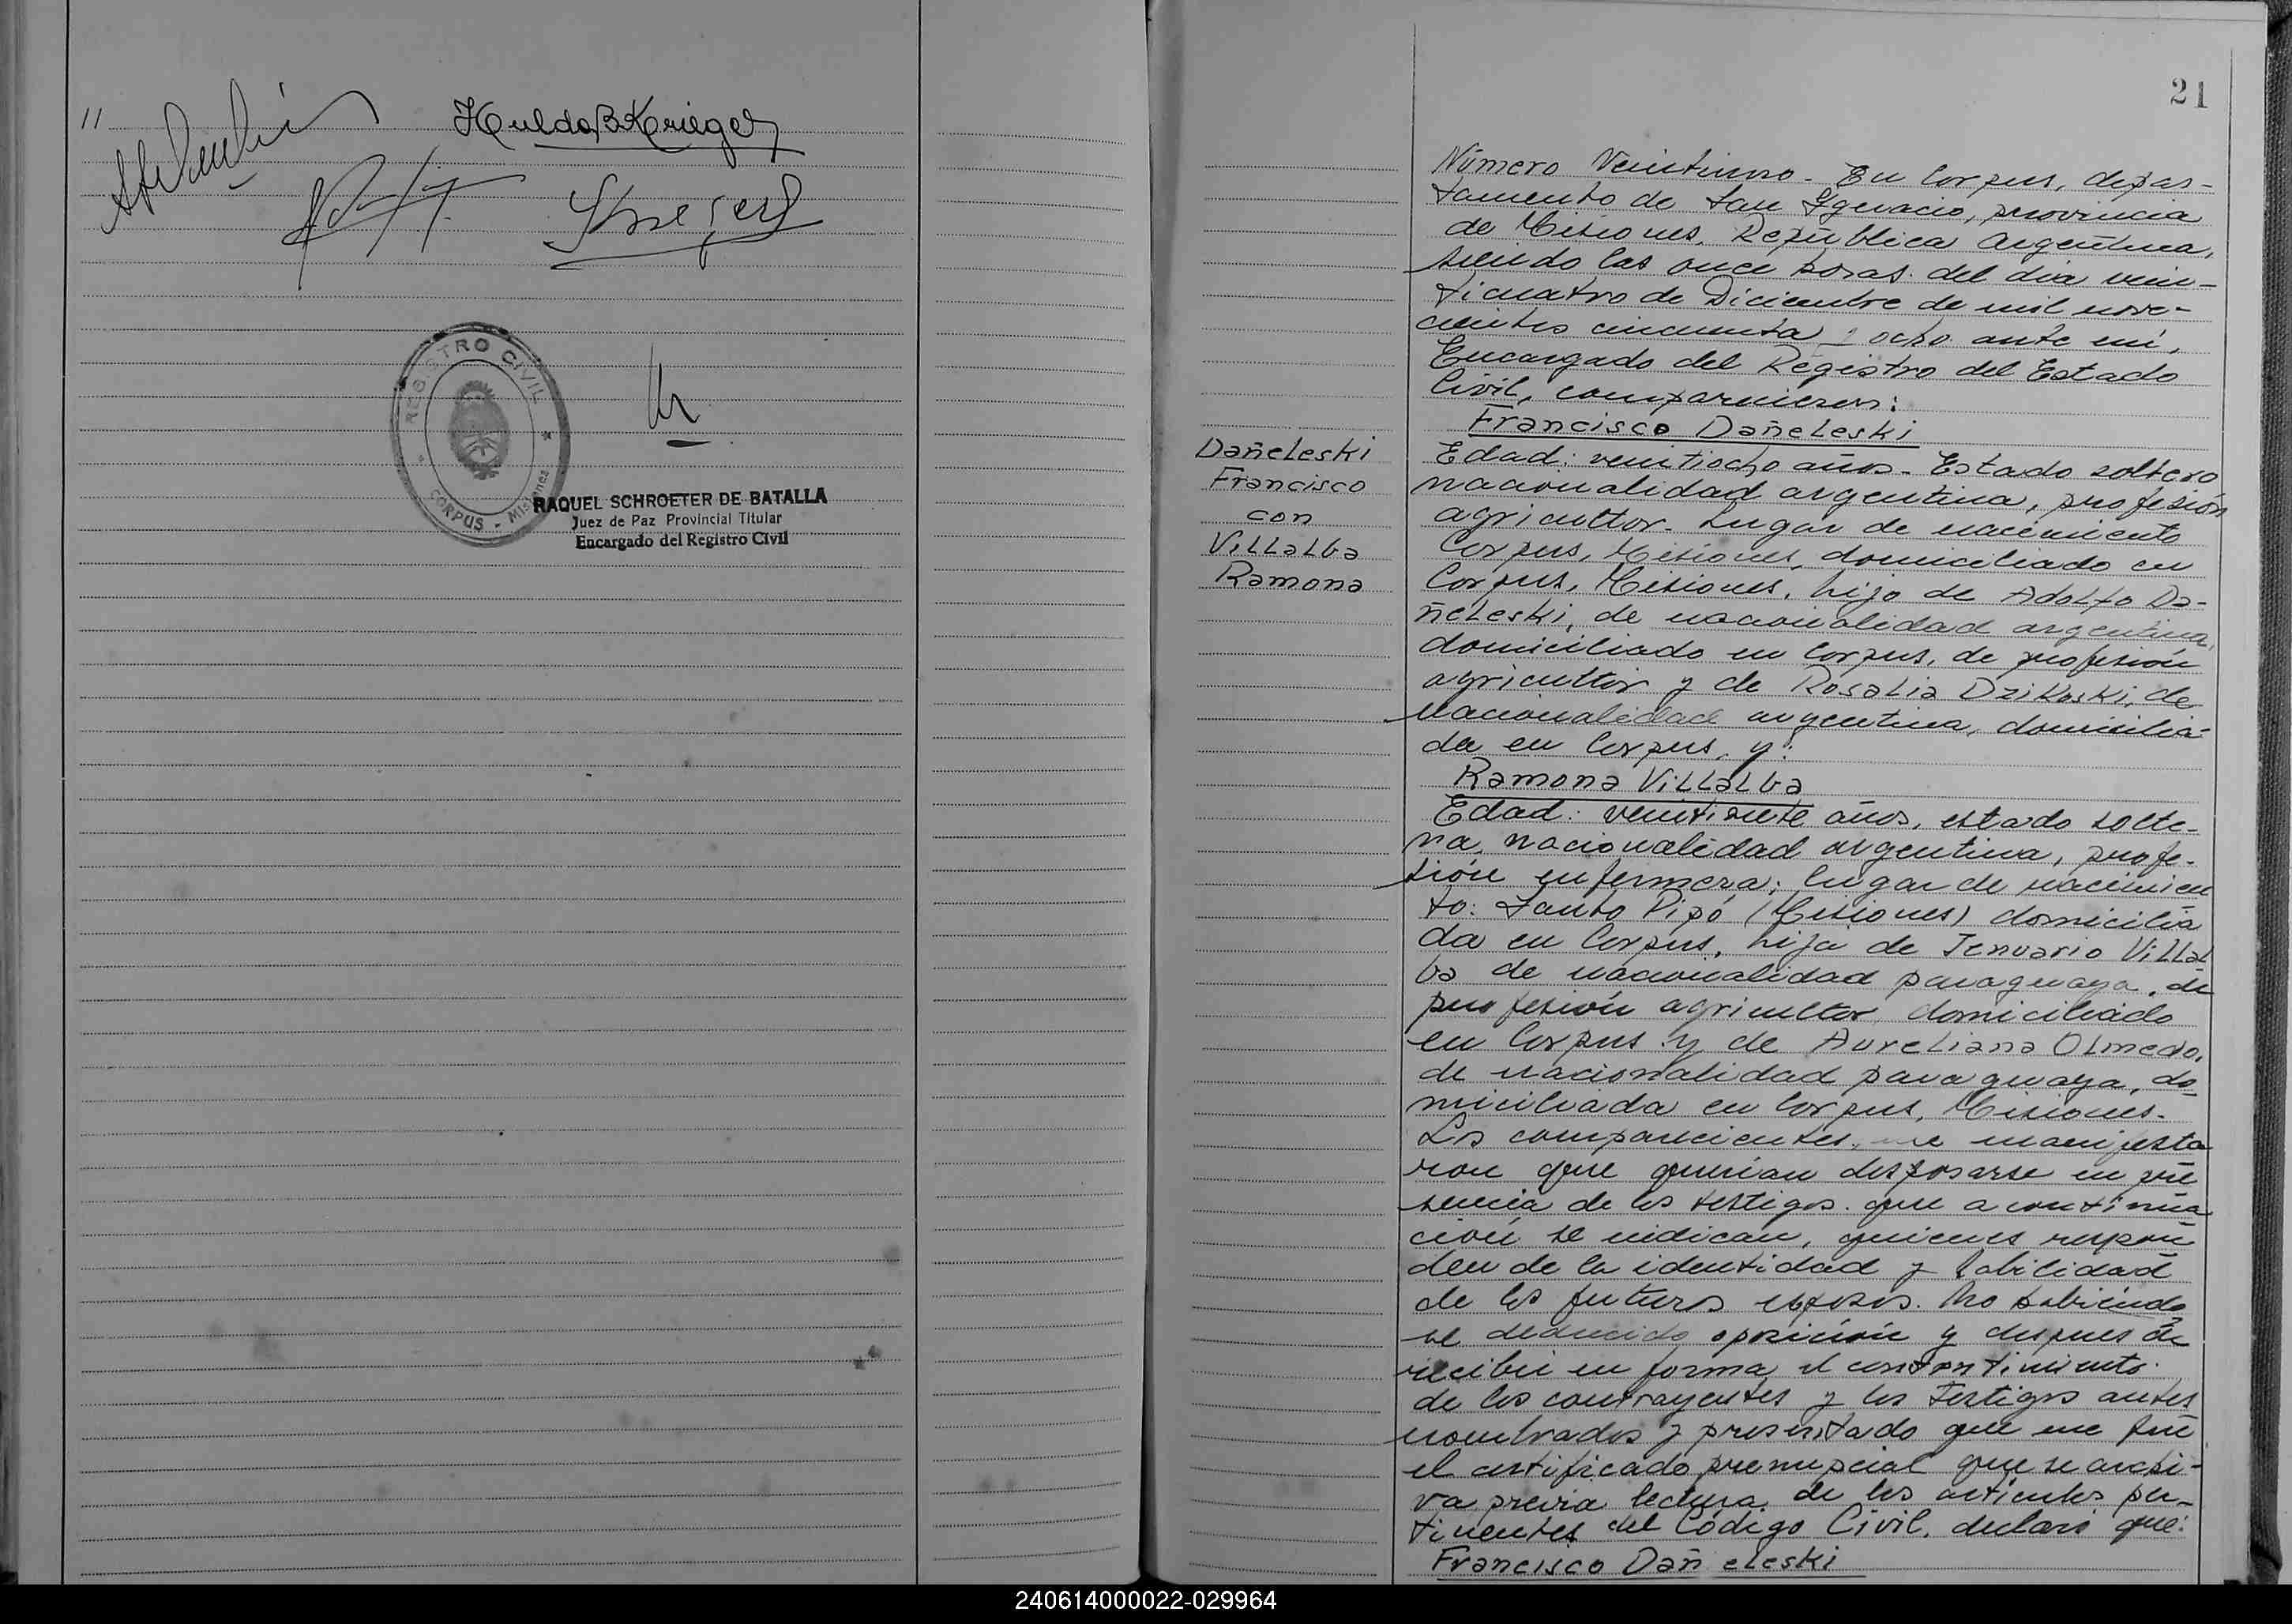 11
Hulda B Krieger
REGISTRO CIVIL
CORPUS - Misiones
RAQUEL SCHROETER DE BATALLA
Juez de Paz Provincial Titular
Encargado del Registro Civil
21
Dañeleski
Francisco
con
Villalba
Ramona
Número Veintiuno - En Corpus, depar-
tamento de San Ignacio, provincia
de Misiones, República Argentina,
siendo las once horas del día vein-
ticuatro de Diciembre de mil nove-
cientos cincuenta y ocho ante mí,
Encargado del Registro del Estado
Civil, comparecieron:
Francisco Dañeleski
Edad: veintiocho años - Estado soltero
nacionalidad argentina, profesión
agricultor - Lugar de nacimiento
Corpus, Misiones, domiciliado en
Corpus, Misiones, hijo de Adolfo Da-
ñeleski, de nacionalidad argentina,
domiciliado en Corpus, de profesión
agricultor y de Rosalia Dzikoski, de
nacionalidad argentina, domicilia-
da en Corpus, y:
Ramona Villalba
Edad: veintisiete años, estado solte-
ra, nacionalidad argentina, profe-
sión enfermera; lugar de nacimien
to: Santo Pipó (Misiones) domicilia
da en Corpus, hija de Jenuario Villal
ba de nacionalidad paraguaya, de
profesión agricultor domiciliado
en Corpus y de Aureliana Olmedo,
de nacionalidad paraguaya, do
miciliada en Corpus, Misiones.-
Los comparecientes, me manifesta
ron que querían desposarse en pre
sencia de los testigos que a continua
ción se indican, quienes respon
den de la identidad y habilidad
de los futuros esposos. No habiendo
se deducido oposición y despues de
recibir en forma el consentimiento
de los contrayentes y los testigos antes
nombrados y presentado que me fue
el certificado prenupcial que se archi-
va previa lectura de los artículos per-
tinentes del Código Civil, declaró que:
Francisco Dañeleski
240614000022-029964